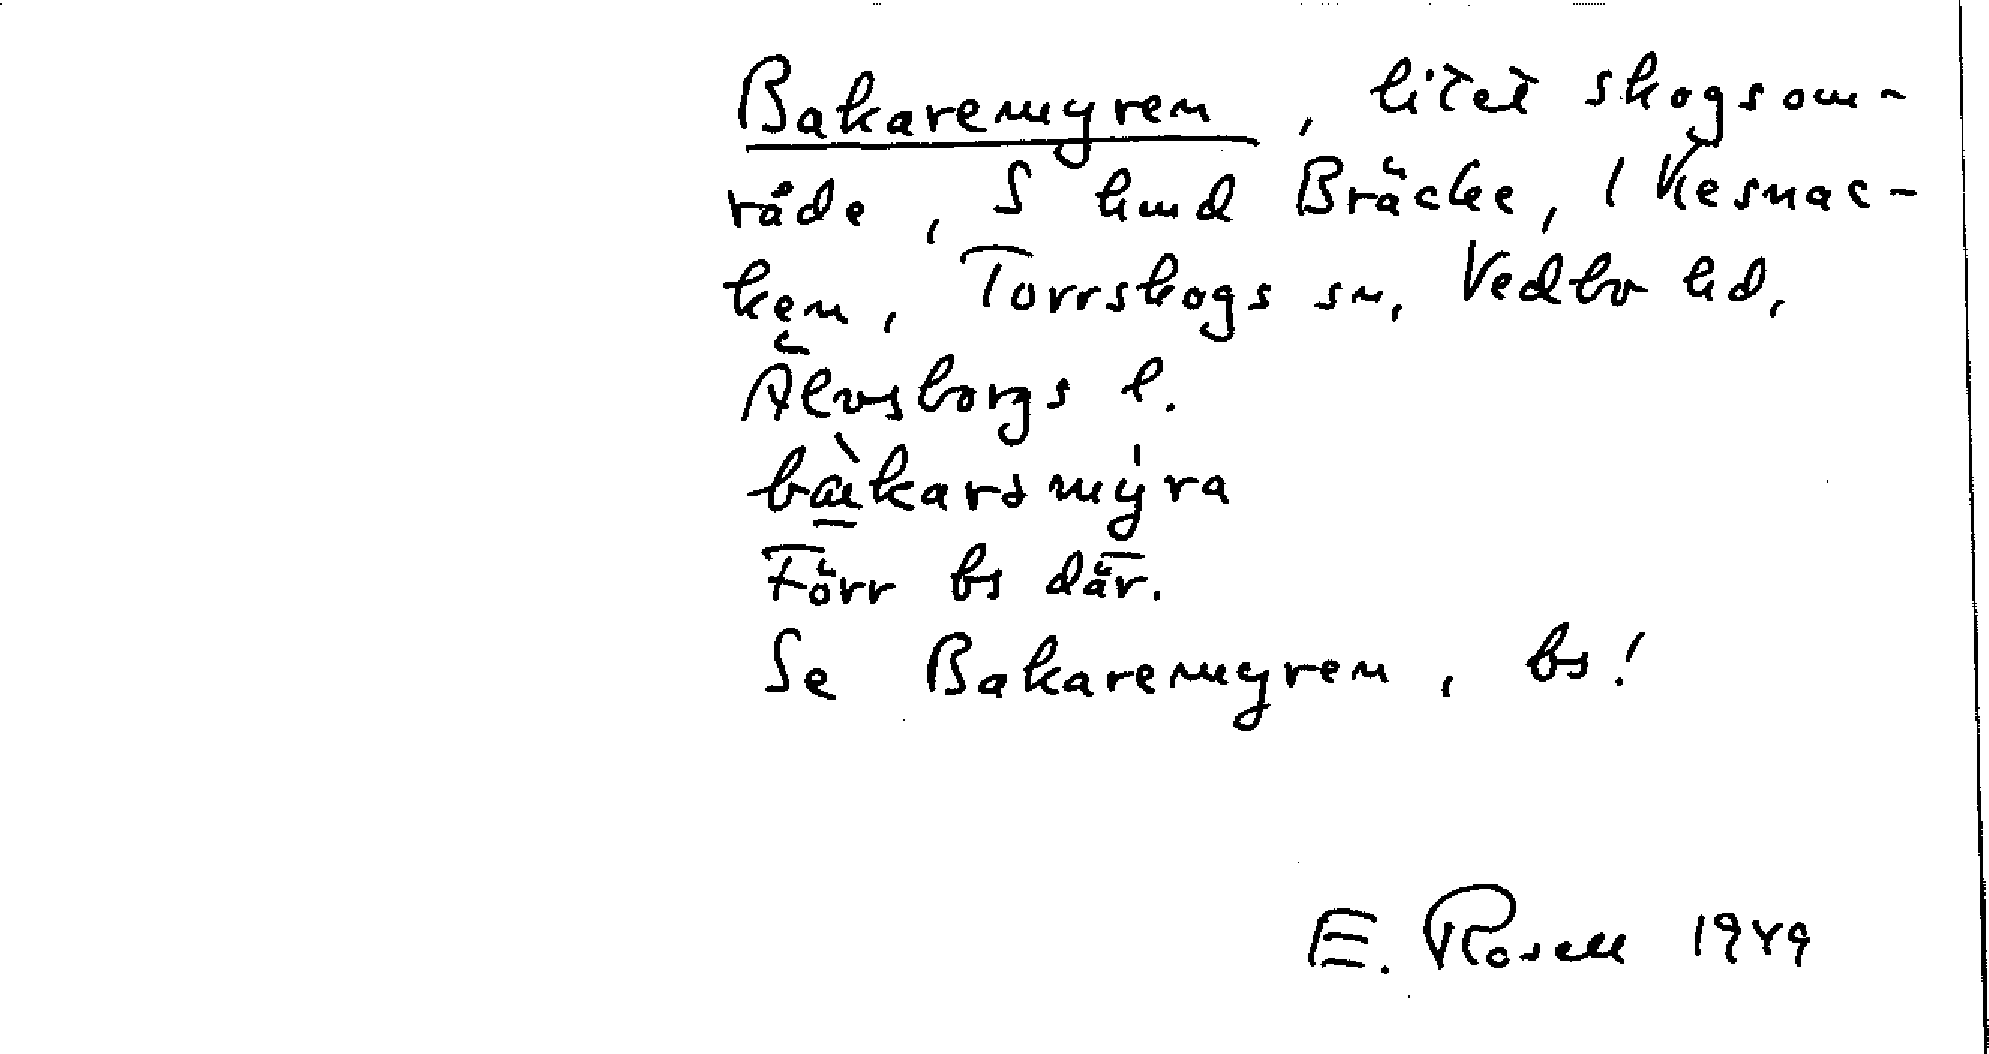 Bakaremyren, litet skogsom-
råde, S hmd Bräcke, 1 Kesnac-
ken, Torrskogs sn, Vedbo hd,
Älvsborgs l.
Förr bs där.
Se Bakaremyren, bs!
E. Rosell 1949